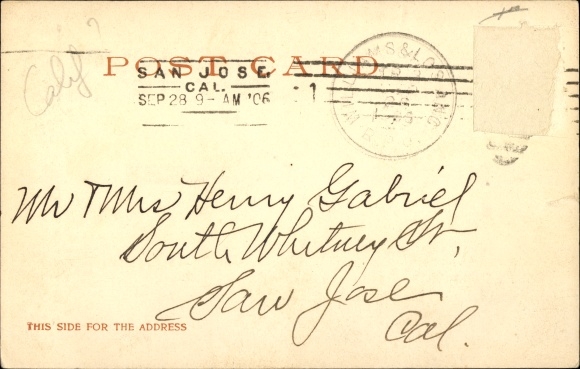 Calif?
POST CARD
SAN JOSE,
CAL.
SEP 28 9-AM '06
1
Mr & Mrs Henry Gabriel
South Whitney St,
San Jose
Cal.
THIS SIDE FOR THE ADDRESS